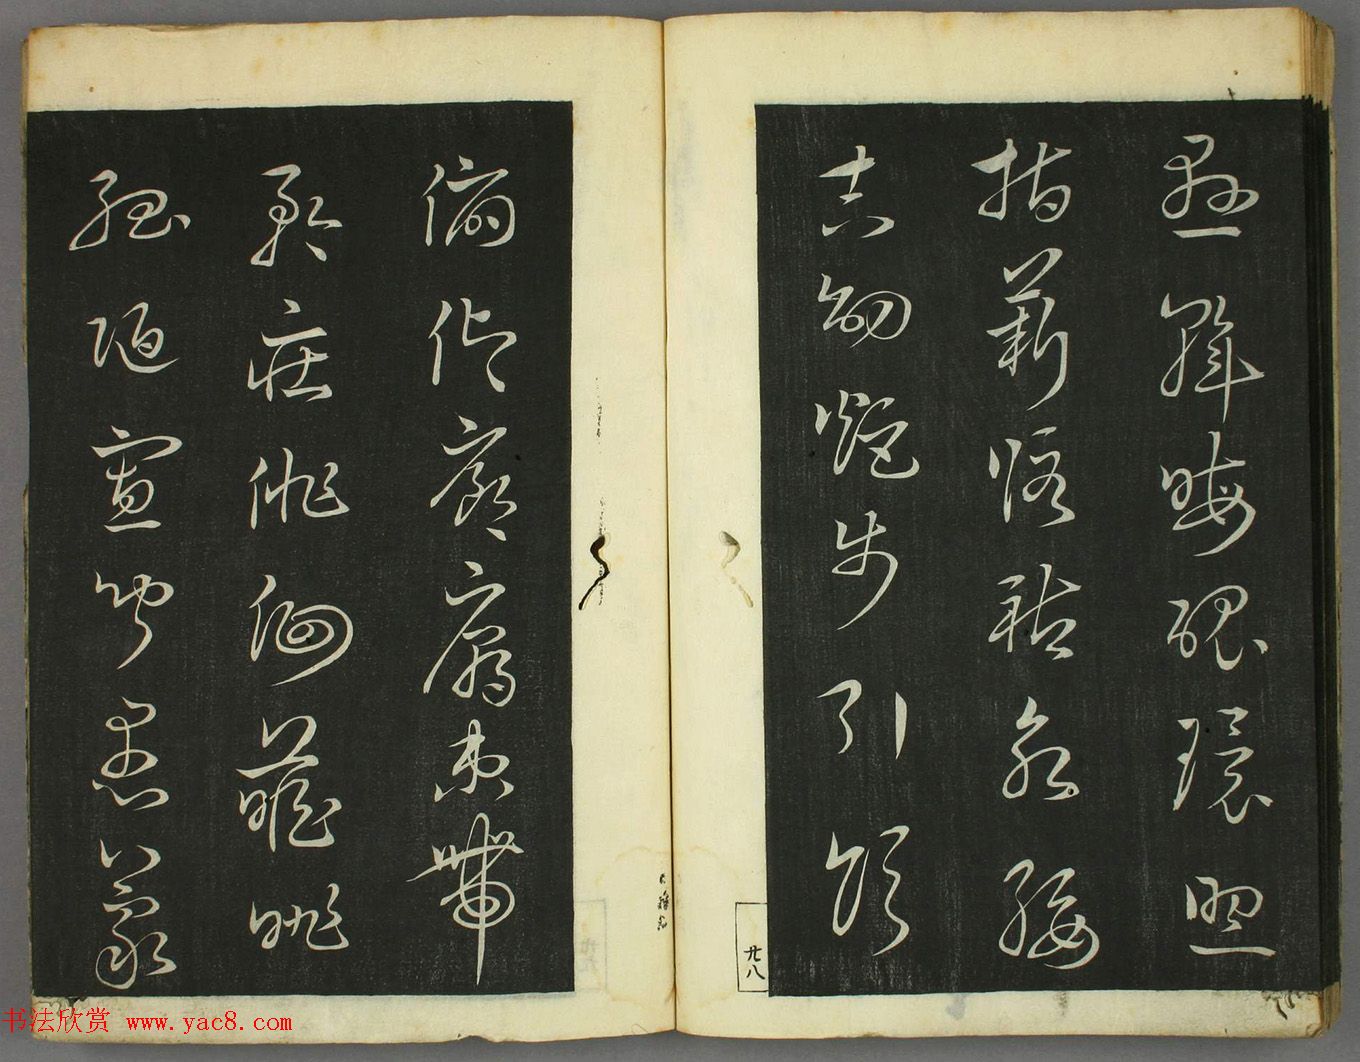 懸斡晦魄環照
指薪脩祜永綏
吉劭矩步引領
俯仰廊廟束帶
矜莊俳佪瞻眺
孤陋寡聞愚蒙
廿八
书法欣赏 www.yac8.com